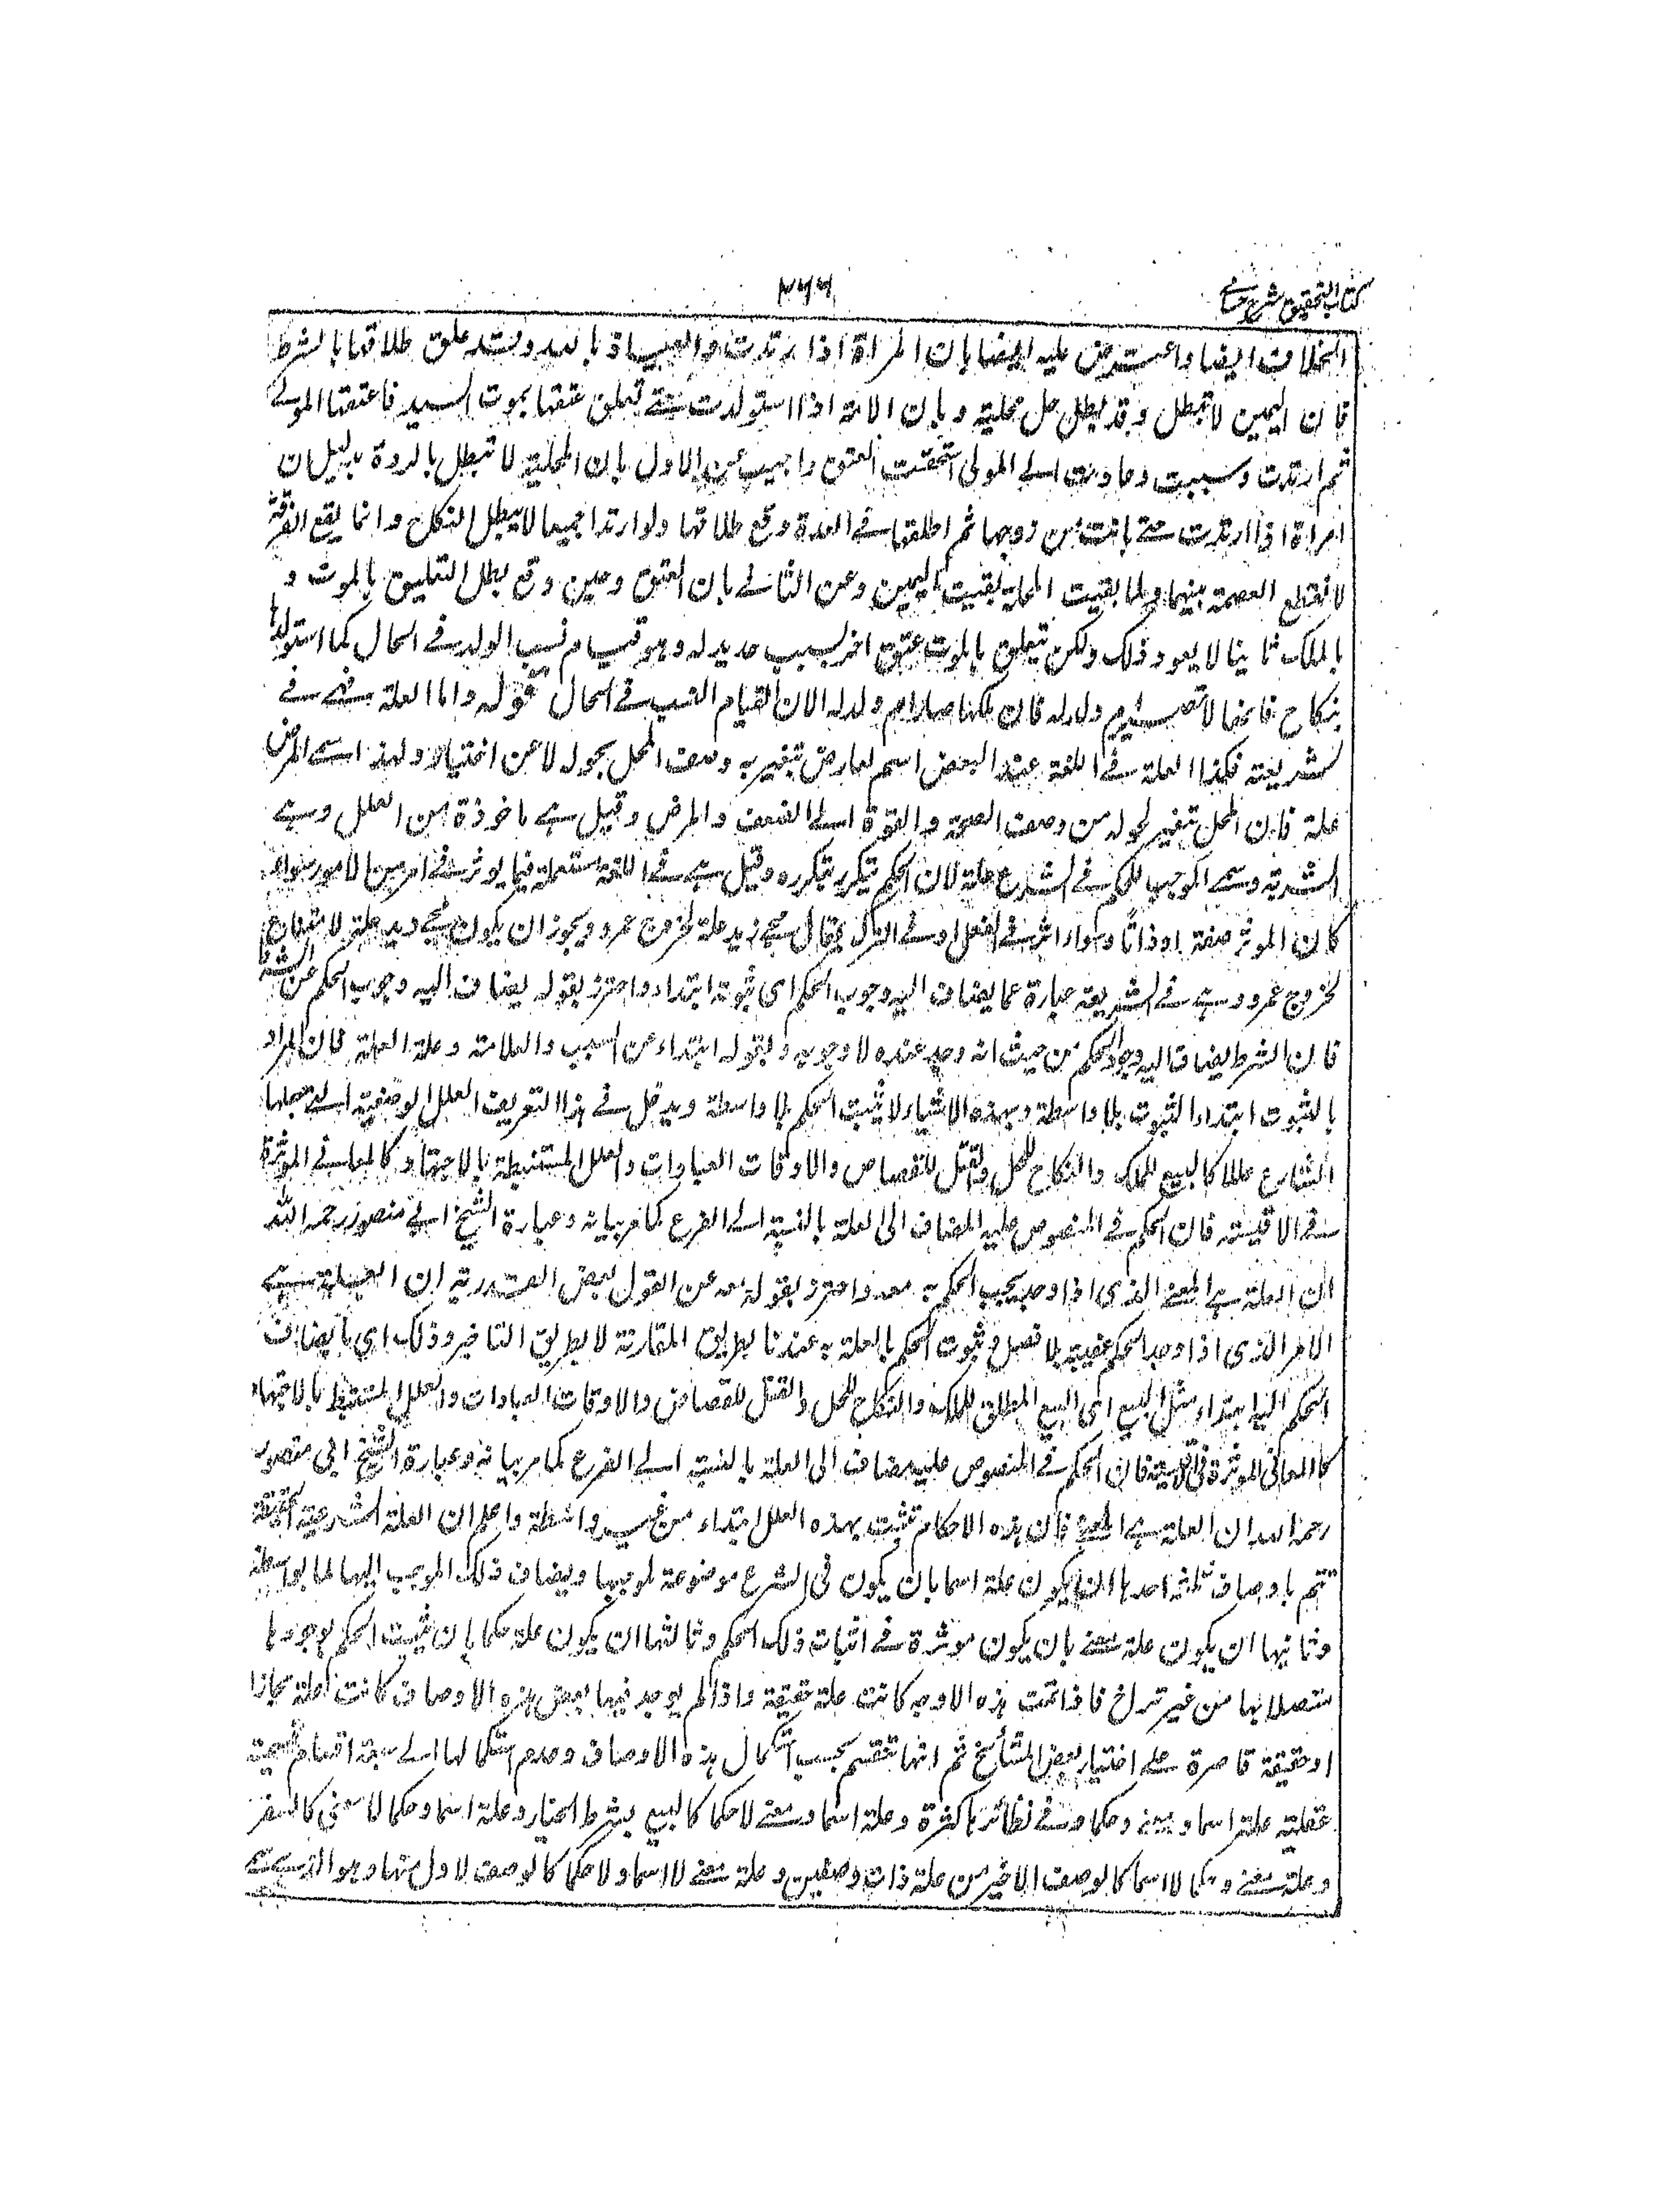 كتاب التحقيق شرح حسامي
٢٦٦
الخلاف ايضا واعترض عليه ايضا بان المراة اذا ارتدت والعياذ بالله وقد علق طلاقها بالشرط
فان اليمين لا تبطل وقد بطل حل محلية وبان الامة اذا استولدت حتى تعلق عتقها بموت السيد فاعتقها المولى
ثم ارتدت وسبيت وعادت الى المولى استحقت العتق واجيب عن الاول بان المحلية لا تبطل بالردة بدليل ان
امراة اذا ارتدت حتى بانت من زوجها ثم اطلقها في العدة وقع طلاقها ولو ارتدا جميعا لا يبطل النكاح وانما يقع الفرقة
لانقطاع العصمة بينهما ولما بقيت المحلية بقيت اليمين وعن الثاني بان العتق وحين وقع بطل التعليق بالموت و
بالملك ثانيا لا يعود ذلك ولكن يتعلق بالموت عتق اخر لسبب جديد له وهو قيام نسب الولد في الحال كما استولدها
بنكاح فانها لا تصير ام ولد له فان ملكها صار ام ولد له الان لقيام النسب في الحال قوله واما العلة فهي في
الشريعة فكذا العلة في اللغة عند البعض اسم لعارض تتغير به وصف المحل بحوله لا عن اختيار ولهذا سمي المرض
علة فان المحل تتغير لحوله من وصف الصحة والقوة الى الضعف والمرض وقيل هي ماخوذة من العلل وهي
الشربة وسمي الموجب للحكم في الشرع علة لان الحكم تيكرر بتكرره وقيل هي في اللغة مستعملة فيما يوثر في امر من الامور سواء
كان الموثر صفة او ذاتا وسواء اثر في الفعل او في الترك يقال مجيء زيد علة لخروج عمرو ويجوز ان يكون مجيء زيد علة لامتناع
لخروج عمرو وهي في الشريعة عبارة عما يضاف اليه وجوب الحكم اى ثبوته ابتداء واحترز بقوله يضاف اليه وجوب الحكم عن الشرط
فان الشرط يضاف اليه وجود الحكم من حيث انه وجد عنده لا وجوبه وبقوله ابتداء عن السبب والعلامة وعلة العلة فان المراد
بالثبوت ابتداء الثبوت بلا واسطة وبهذه الاشياء لا يثبت الحكم بلا واسطة ويدخل في هذا التعريف العلل الوضعية التي جعلها
الشارع عللا كالبيع للملك والنكاح للحل والقتل للقصاص والاوقات العبادات والعلل المستنبطة بالاجتهاد كالمعاني الموثرة
في الاقيسة فان الحكم في المنصوص عليه المضاف الى العلة بالنسبة الى الفرع كما مر بيانه وعبارة الشيخ ابي منصور رحمه الله
ان العلة هي المعنى الذى اذا وجد يجب الحكم به معه واحترز بقوله معه عن القول بعض القدرية ان العلة هي
الامر الذى اذا وجد الحكم عقيبه بلا فصل وثبوت الحكم بالعلة به عندنا بطريق المقارنة لا بطريق التاخير وذلك اي ما يضاف
الحكم اليه ابتداء مثل البيع اى البيع المطلق للملك والنكاح للحل والقتل للقصاص والاوقات العبادات والعلل المستنبطة بالاجتهاد
كالمعاني الموثرة في الاقيسة فان الحكم في المنصوص عليه مضاف الى العلة بالنسبة الى الفرع كما مر بيانه وعبارة الشيخ ابى منصور
رحمه الله ان العلة هي المعنى فان هذه الاحكام تثبت بهذه العلل ابتداء من غير واسطة واعلم ان العلة الشرعية الحقيقة
تتم باوصاف ثلثة احدها ان يكون علة اسما بان يكون فى الشرع موضوعة لموجبها ويضاف ذلك الموجب اليها لما بواسطة
وثانيها ان يكون علة معنى بان يكون موثرة في اثبات ذلك الحكم وثالثها ان يكون علة حكما بان يثبت الحكم بوجودها
متصلا بها من غير تراخ فاذا تمت هذه الاوجه كانت علة حقيقة واذا لم يوجد فيها بعض هذه الاوصاف كانت علة مجازا
او حقيقة قاصرة على اختيار بعض المشائخ ثم انها تنقسم بحسب استكمال هذه الاوصاف وعدم استكمالها الى سبعة اقسام قسمة
عقلية علة اسما ومعنى وحكما وفي نظائرها كثرة وعلة اسما ومعنى لا حكما كالبيع بشرط الخيار وعلة اسما وحكما لا معنى كالسفر
وعلة معنى وحكما لا اسما كالوصف الاخير من علة ذات وصفين وعلة معنى لا اسما ولا حكما كالوصف لاول منها وهو الذى